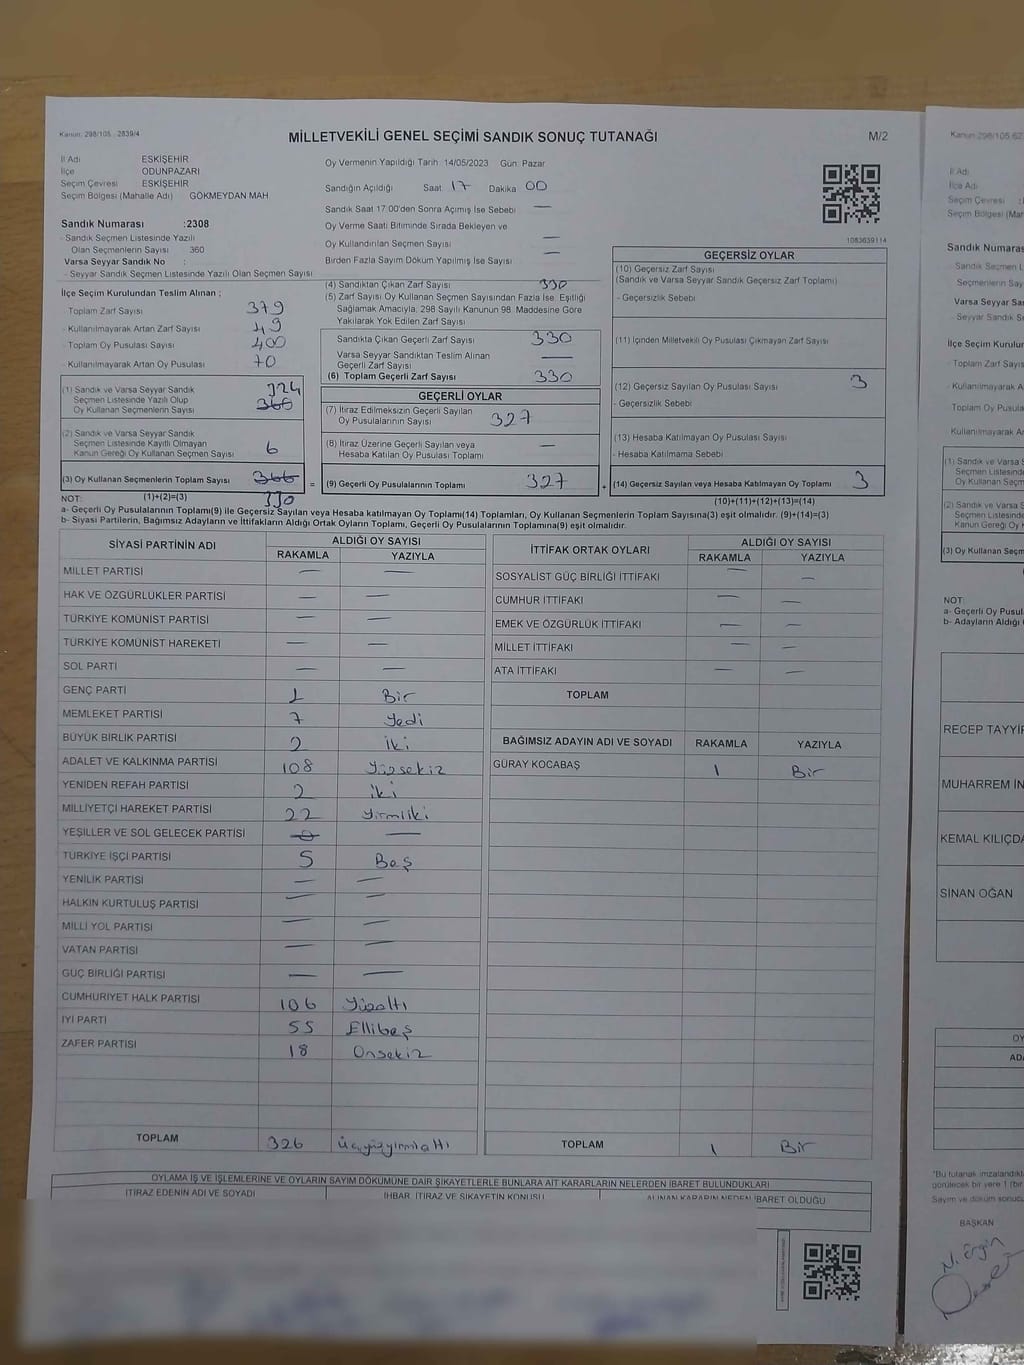 Kanun: 298/105 - 2839/4
MİLLETVEKİLİ GENEL SEÇİMİ SANDIK SONUÇ TUTANAĞI
M/2
İl Adı ESKİŞEHİR
İlçe ODUNPAZARI
Seçim Çevresi ESKİŞEHİR
Seçim Bölgesi (Mahalle Adı) GÖKMEYDAN MAH
Sandık Numarası :2308
- Sandık Seçmen Listesinde Yazılı
Olan Seçmenlerin Sayısı 360
Varsa Seyyar Sandık No :
- Seyyar Sandık Seçmen Listesinde Yazılı Olan Seçmen Sayısı
Oy Vermenin Yapıldığı Tarih: 14/05/2023 Gün: Pazar
Sandığın Açıldığı Saat 17 Dakika 00
Sandık Saat 17:00'den Sonra Açımış İse Sebebi —
Oy Verme Saati Bitiminde Sırada Bekleyen ve
Oy Kullandırılan Seçmen Sayısı —
Birden Fazla Sayım Döküm Yapılmış İse Sayısı —
1083639114
İlçe Seçim Kurulundan Teslim Alınan ;
- Toplam Zarf Sayısı 379
- Kullanılmayarak Artan Zarf Sayısı 49
- Toplam Oy Pusulası Sayısı 400
- Kullanılmayarak Artan Oy Pusulası 70
(1) Sandık ve Varsa Seyyar Sandık 324
Seçmen Listesinde Yazılı Olup
Oy Kullanan Seçmenlerin Sayısı 360
(2) Sandık ve Varsa Seyyar Sandık
Seçmen Listesinde Kayıtlı Olmayan
Kanun Gereği Oy Kullanan Seçmen Sayısı 6
(3) Oy Kullanan Seçmenlerin Toplam Sayısı 366
(1)+(2)=(3) 330
(4) Sandıktan Çıkan Zarf Sayısı 330
(5) Zarf Sayısı Oy Kullanan Seçmen Sayısından Fazla İse, Eşitliği
Sağlamak Amacıyla, 298 Sayılı Kanunun 98. Maddesine Göre
Yakılarak Yok Edilen Zarf Sayısı
Sandıkta Çıkan Geçerli Zarf Sayısı 330
Varsa Seyyar Sandıktan Teslim Alınan
Geçerli Zarf Sayısı —
(6) Toplam Geçerli Zarf Sayısı 330
GEÇERLİ OYLAR
(7) İtiraz Edilmeksizin Geçerli Sayılan
Oy Pusulalarının Sayısı 327
(8) İtiraz Üzerine Geçerli Sayılan veya
Hesaba Katılan Oy Pusulası Toplamı —
= (9) Geçerli Oy Pusulalarının Toplamı 327 +
GEÇERSİZ OYLAR
(10) Geçersiz Zarf Sayısı
(Sandık ve Varsa Seyyar Sandık Geçersiz Zarf Toplamı)
- Geçersizlik Sebebi
(11) İçinden Milletvekili Oy Pusulası Çıkmayan Zarf Sayısı
(12) Geçersiz Sayılan Oy Pusulası Sayısı 3
- Geçersizlik Sebebi
(13) Hesaba Katılmayan Oy Pusulası Sayısı
- Hesaba Katılmama Sebebi
(14) Geçersiz Sayılan veya Hesaba Katılmayan Oy Toplamı 3
(10)+(11)+(12)+(13)=(14)
NOT:
a- Geçerli Oy Pusulalarının Toplamı(9) ile Geçersiz Sayılan veya Hesaba katılmayan Oy Toplamı(14) Toplamları, Oy Kullanan Seçmenlerin Toplam Sayısına(3) eşit olmalıdır. (9)+(14)=(3)
b- Siyasi Partilerin, Bağımsız Adayların ve İttifakların Aldığı Ortak Oyların Toplamı, Geçerli Oy Pusulalarının Toplamına(9) eşit olmalıdır.
SİYASİ PARTİNİN ADI ALDIĞI OY SAYISI
RAKAMLA YAZIYLA
MİLLET PARTİSİ — —
HAK VE ÖZGÜRLÜKLER PARTİSİ — —
TÜRKİYE KOMÜNİST PARTİSİ — —
TÜRKİYE KOMÜNİST HAREKETİ — —
SOL PARTİ — —
GENÇ PARTİ 1 Bir
MEMLEKET PARTİSİ 7 Yedi
BÜYÜK BİRLİK PARTİSİ 2 İki
ADALET VE KALKINMA PARTİSİ 108 Yüzsekiz
YENİDEN REFAH PARTİSİ 2 iki
MİLLİYETÇİ HAREKET PARTİSİ 22 Yirmiiki
YEŞİLLER VE SOL GELECEK PARTİSİ 0 —
TÜRKİYE İŞÇİ PARTİSİ 5 Beş
YENİLİK PARTİSİ — —
HALKIN KURTULUŞ PARTİSİ — —
MİLLİ YOL PARTİSİ — —
VATAN PARTİSİ — —
GÜÇ BİRLİĞİ PARTİSİ — —
CUMHURİYET HALK PARTİSİ 106 Yüzaltı
İYİ PARTİ 55 Ellibeş
ZAFER PARTİSİ 18 Onsekiz
TOPLAM 326 Üçyüzyirmialtı
İTTİFAK ORTAK OYLARI ALDIĞI OY SAYISI
RAKAMLA YAZIYLA
SOSYALİST GÜÇ BİRLİĞİ İTTİFAKI — —
CUMHUR İTTİFAKI — —
EMEK VE ÖZGÜRLÜK İTTİFAKI — —
MİLLET İTTİFAKI — —
ATA İTTİFAKI — —
TOPLAM
BAĞIMSIZ ADAYIN ADI VE SOYADI RAKAMLA YAZIYLA
GÜRAY KOCABAŞ 1 Bir
TOPLAM 1 Bir
OYLAMA İŞ VE İŞLEMLERİNE VE OYLARIN SAYIM DÖKÜMÜNE DAİR ŞİKAYETLERLE BUNLARA AİT KARARLARIN NELERDEN İBARET BULUNDUKLARI
İTİRAZ EDENİN ADI VE SOYADI İHBAR, İTİRAZ VE ŞİKAYETİN KONUSU ALINAN KARARIN NEDEN İBARET OLDUĞU
Kanun 298/105
İl Adı
İlçe Adı
Seçim Çevresi
Seçim Bölgesi (Mah
Sandık Numaras
- Sandık Seçmen L
Seçmenlerin Say
Varsa Seyyar San
- Seyyar Sandık Se
İlçe Seçim Kurulur
- Toplam Zarf Sayıs
- Kullanılmayarak A
Toplam Oy Pusula
- Kullanılmayarak A
(1) Sandık ve Varsa
Seçmen Listesinde
Oy Kullanan Seçmen
(2) Sandık ve Varsa
Seçmen Listesinde
Kanun Gereği Oy K
(3) Oy Kullanan Seçmen
NOT:
a- Geçerli Oy Pusul
b- Adayların Aldığı
RECEP TAYYİP
MUHARREM İN
KEMAL KILIÇDA
SİNAN OĞAN
OY
ADI
"Bu tutanak imzalandıkt
görülecek bir yere 1 (bir
Sayım ve döküm sonucu
BAŞKAN
N. Ergin